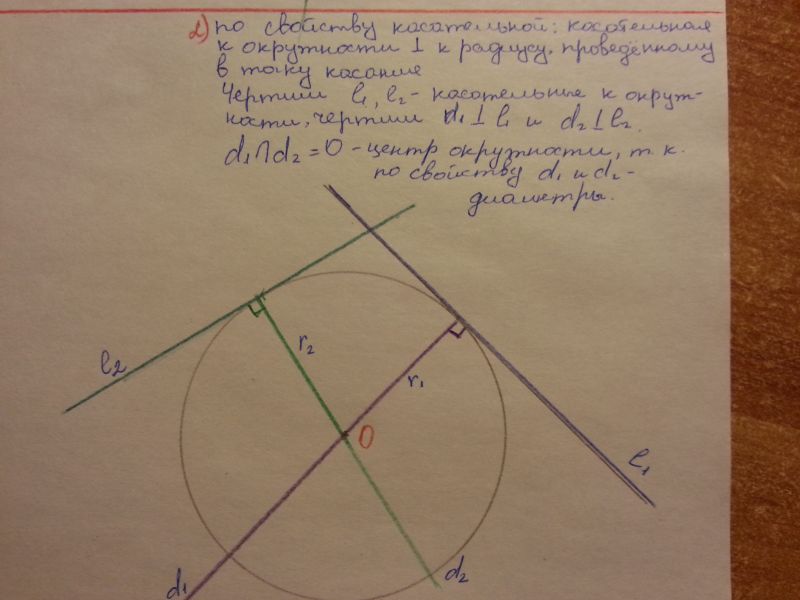 2) по свойству касательной: касательная
к окружности ⊥ к радиусу, проведённому
в точку касания
Чертим l₁, l₂ - касательные к окруж-
ности, чертим d₁⊥l₁ и d₂⊥l₂.
d₁∩d₂ = O - центр окружности, т.к.
по свойству d₁ и d₂ -
диаметры.
l₂
r₂
r₁
O
l₁
d₁
d₂